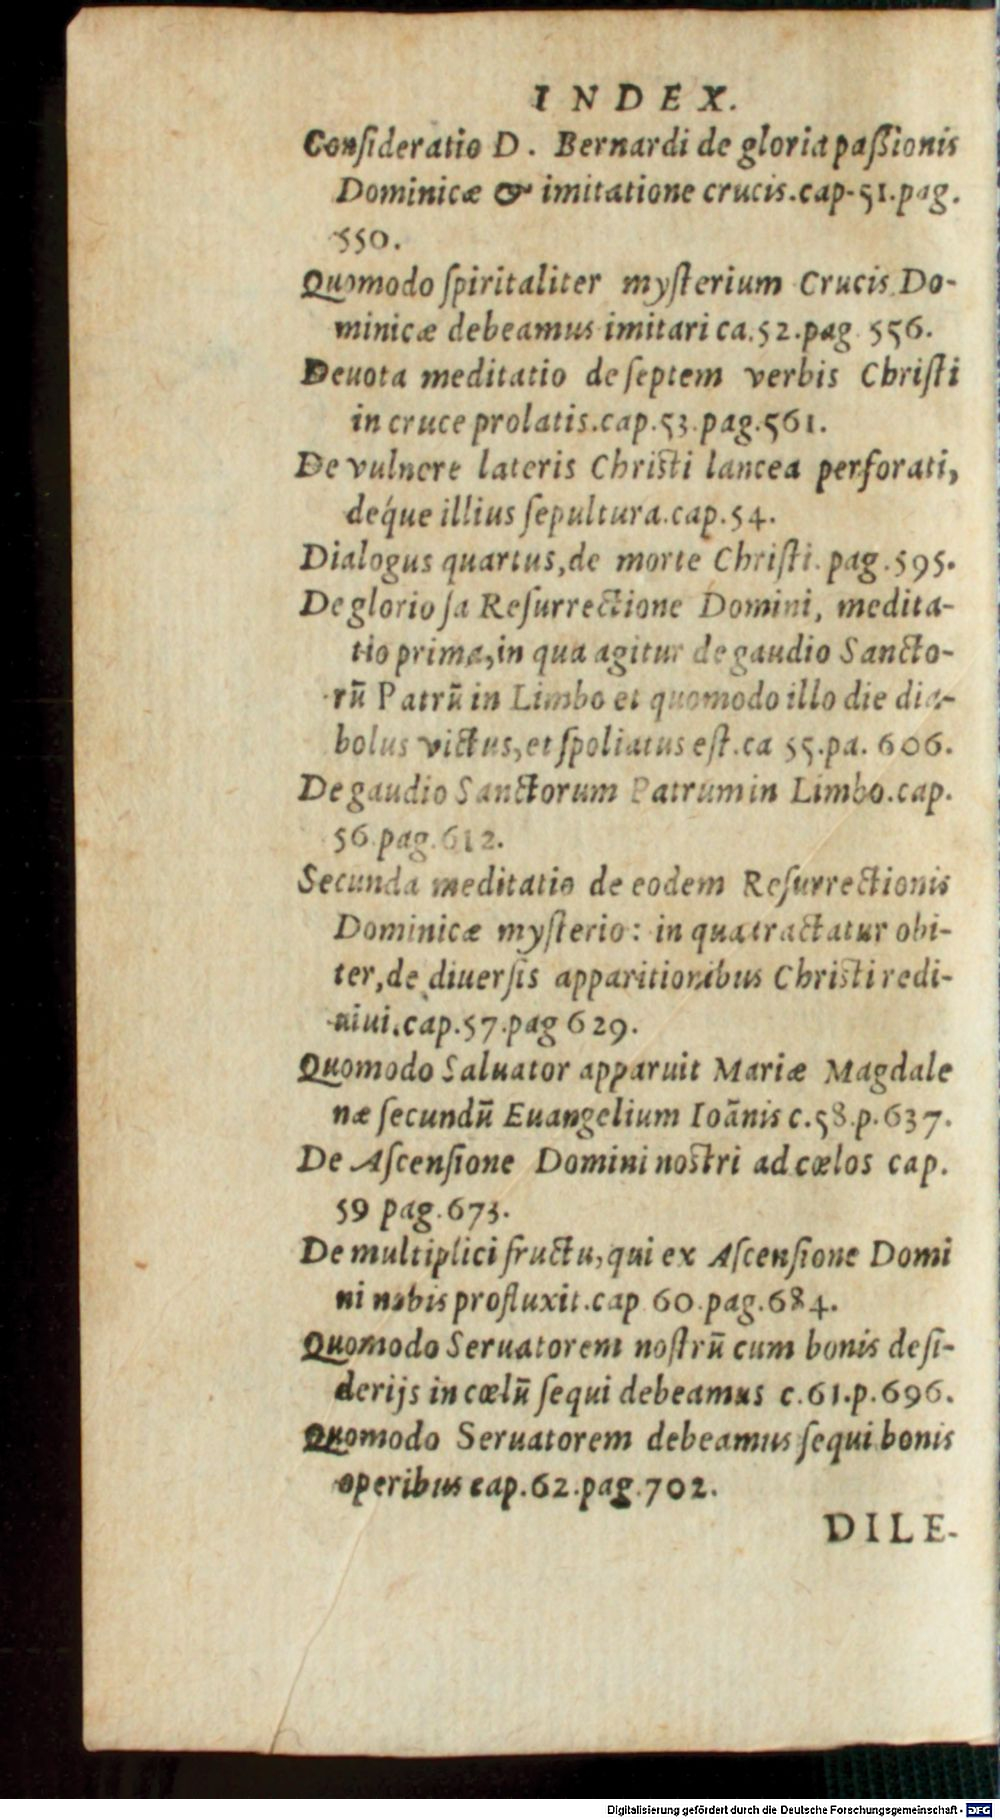 INDEX.
Conſideratio D. Bernardi de gloria paſſionis
Dominicæ & imitatione crucis.cap-51.pag.
550.
Quomodo ſpiritaliter myſterium Crucis Do-
minicæ debeamus imitari ca.52.pag. 556.
Deuota meditatio de ſeptem verbis Chriſti
in cruce prolatis.cap.53.pag.561.
De vulnere lateris Chriſti lancea perforati,
deq́ue illius ſepultura.cap.54.
Dialogus quartus,de morte Chriſti.pag.595.
De glorioſa Reſurrectione Domini, medita-
tio prima,in qua agitur de gaudio Sancto-
rū Patrū in Limbo et quomodo illo die dia-
bolus victus,et ſpoliatus eſt.ca 55.pa. 606.
De gaudio Sanctorum Patrum in Limbo.cap.
56.pag.612.
Secunda meditatio de eodem Reſurrectionis
Dominicæ myſterio: in qua tractatur obi-
ter,de diuerſis apparitionibus Chriſti redi-
uiui.cap.57.pag 629.
Quomodo Saluator apparuit Mariæ Magdale
næ ſecundū Euangelium Ioānis c.58.p.637.
De Aſcenſione Domini noſtri ad cœlos cap.
59 pag.673.
De multiplici fructu,qui ex Aſcenſione Domi
ni nobis profluxit.cap 60.pag.684.
Quomodo Seruatorem noſtrū cum bonis deſi-
derijs in cœlū ſequi debeamus c.61.p.696.
Quomodo Seruatorem debeamus ſequi bonis
operibus cap.62.pag.702.
DILE-
Digitalisierung gefördert durch die Deutsche Forschungsgemeinschaft - DFG